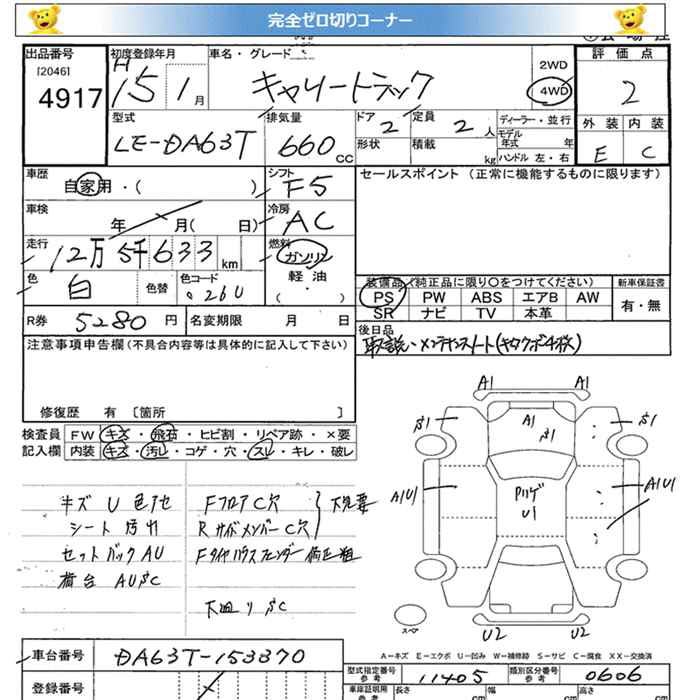 完全ゼロ切りコーナー
出品番号
[2046]
4917
初度登録年月
H
15 1月
車名・グレード
キャリートラック
2WD
4WD
評価点
2
型式
LE-DA63T
排気量
660 CC
ドア
2
形状
定員
2 人
積載
kg
ディーラー・並行
モデル
年式 年
ハンドル 左・右
外装 内装
E C
車歴
自家用・( )
シフト
F5
セールスポイント(正常に機能するものに限ります)
車検
年 月( 日)
冷房
AC
走行
12万5千633 km
燃料
ガソリン
軽・油
( ・ )
色
白
色替
色コード
26U
装備品(純正品に限り○をつけてください)
PS PW ABS エアB AW
SR ナビ TV 本革
新車保証書
有・無
R券 5280 円
名変期限 月 日
後日品
取説・メンテナンスノート
注意事項申告欄(不具合内容等は具体的に記入して下さい)
修復歴 有 〔箇所 〕
検査員
記入欄
FW キズ・飛石・ヒビ割・リペア跡・×要
内装 キズ・汚れ・コゲ・穴・スレ・キレ・破レ
キズ U 色アセ
シート 汚れ
セットバック AU
荷台 AUSC
FフロアC穴
RサイドメンバーC穴
下廻り SC
A1 A1
S1 A1 S1 S1
A1U1 U1 A1U1
スペア
U2 U2
A－キズ E－エクボ U－凹み W－補修跡 S－サビ C－腐食 XX－交換済
車台番号 DA63T-153370
登録番号
型式指定番号
参考
11405
類別区分番号
参考
0606
車庫証明用
長さ cm
幅 cm
高さ cm